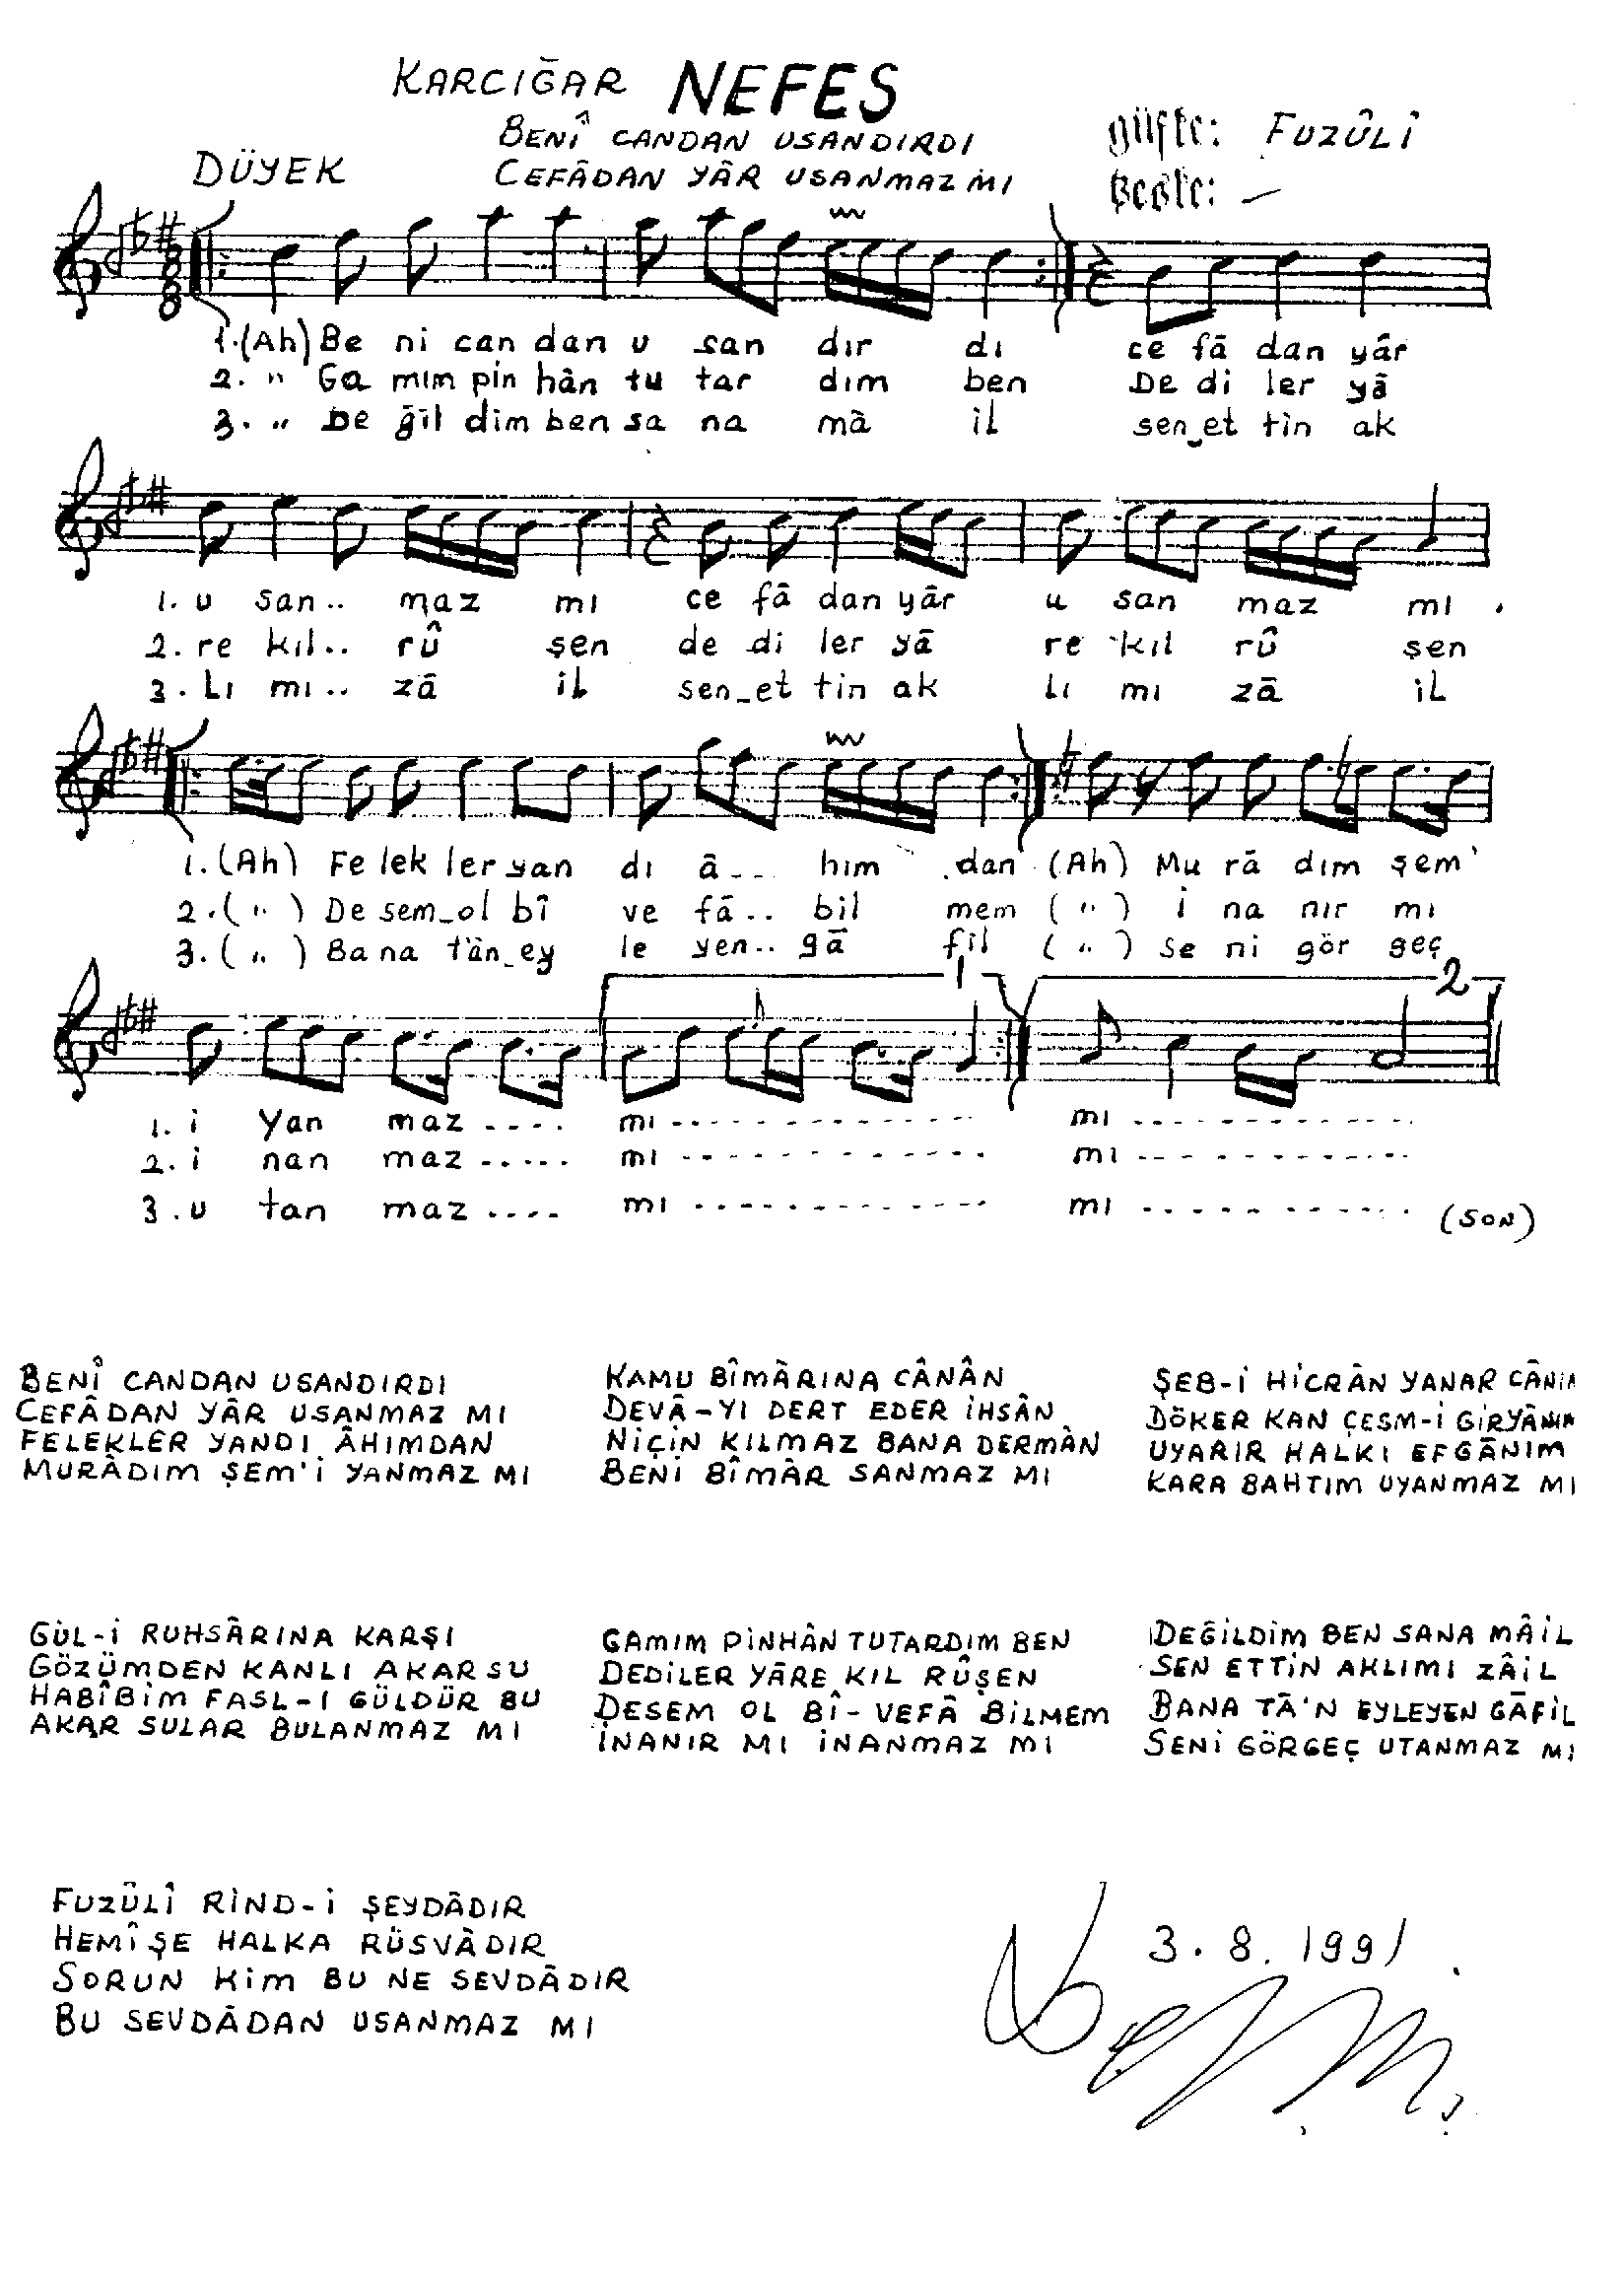 KARCIĞAR NEFES
DÜYEK
BENÎ CANDAN USANDIRDI
CEFÂDAN YÂR USANMAZ MI
güfte: FUZÛLÎ
Beste: —
8
8
1.(Ah) Be ni can dan u san dır dı ce fā dan yâr
2. " Ga mım pin hân tu tar dım ben De di ler yâ
3. " De ğil dim ben sa na mâ il sen_et tin ak
1. u san.. maz mı ce fâ dan yâr u san maz mı .
2. re kıl.. rû şen de di ler yā re kıl rû şen
3. Lı mı.. zā il sen_et tin ak lı mı zā il
1.(Ah) Fe lek ler yan dı â... him dan (Ah) Mu râ dım şem'
2.( " ) De sem_ol bî ve fā.. bil mem ( " ) i na nır mı
3.( " ) Ba na tân_ey le yen.. gā fil ( " ) se ni gör geç
1 2
1. i yan maz .... mı ............ mı ............
2. i nan maz ..... mı ............ mı ............
3. u tan maz .... mı ............ mı ............ (SON)
BENÎ CANDAN USANDIRDI
CEFÂDAN YÂR USANMAZ MI
FELEKLER YANDI ÂHIMDAN
MURÂDIM ŞEM'İ YANMAZ MI
KAMU BÎMÂRINA CÂNÂN
DEVÂ-YI DERT EDER İHSÂN
NİÇİN KILMAZ BANA DERMÂN
BENİ BÎMÂR SANMAZ MI
ŞEB-İ HİCRÂN YANAR CÂNIM
DÖKER KAN ÇEŞM-İ GİRYÂNIM
UYARIR HALKI EFGĀNIM
KARA BAHTIM UYANMAZ MI
GÜL-İ RUHSÂRINA KARŞI
GÖZÜMDEN KANLI AKAR SU
HABÎBİM FASL-I GÜLDÜR BU
AKAR SULAR BULANMAZ MI
GAMIM PİNHÂN TUTARDIM BEN
DEDİLER YÂRE KIL RÛŞEN
DESEM OL BÎ-VEFÂ BİLMEM
İNANIR MI İNANMAZ MI
DEĞİLDİM BEN SANA MÂİL
SEN ETTİN AKLIMI ZÂİL
BANA TĀ'N EYLEYEN GĀFİL
SENİ GÖRGEÇ UTANMAZ MI
FUZÛLÎ RİND-İ ŞEYDÂDIR
HEMÎŞE HALKA RÜSVÂDIR
SORUN KİM BU NE SEVDÂDIR
BU SEVDÂDAN USANMAZ MI
3.8.1991